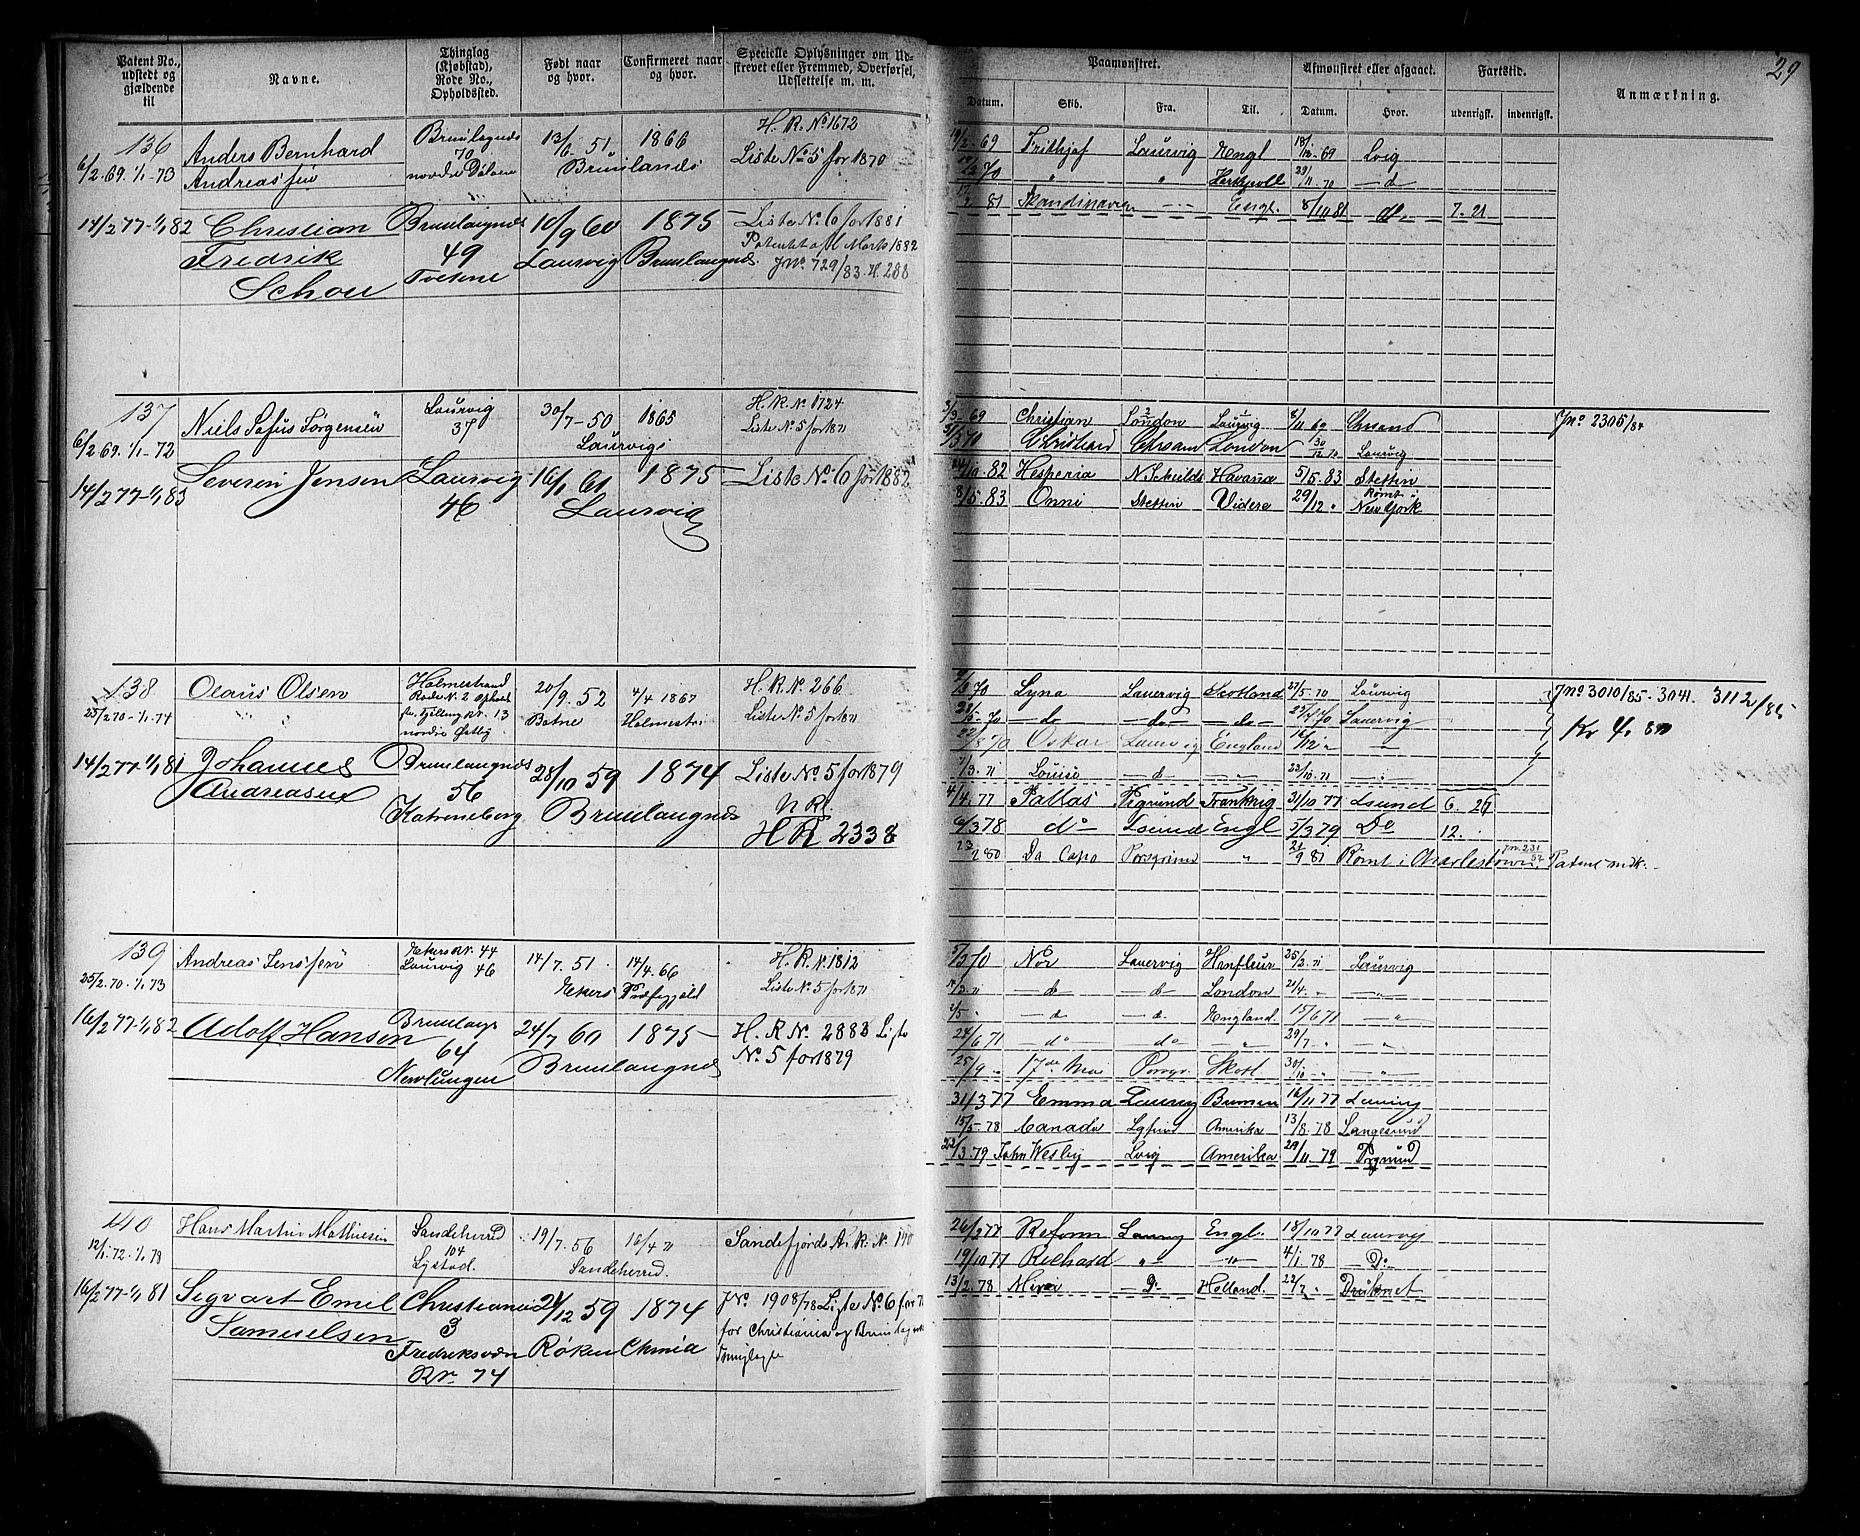 Patent No., udstedt og gjældende til
Navne.
Thinglag (Kjøbstad), Rode No., Opholdssted.
Født naar og hvor.
Confirmeret naar og hvor.
Specielle Oplysninger om Udstrevet eller Fremmed, Overførsel, Udslettelse m. m.
Paamønstret.
Datum.
Skib.
Fra.
Til.
Afmønstret eller afgaaet.
Datum.
Hvor.
Fartstid.
udenrigst.
indenrigst.
Anmærkning.
29
136
6/2 69. 1/1-73
Anders Bernhard
Andreassen
70
13/6 51
1866
Brunlands
H. R. No 1672
Liste No 5 for 1870
14/2 77-1/1 82
Christian
Fredrik
Schou
Brunlangnds
49
Tvetene
16/9 60
Laurvig
1875
Brunlangnds
Liste No. 6 for 1881
JNo. 729/83. H. 288
19/2 69 Frithjof Laurvig Engl 18/12 69 Lvig
70 " " 29/11 70 — d
2 81 Skandinavien — Engl. 8/10 81 do. 7. 21
137
6/2 69. 1/1-72
Niels Sofus Jørgensen
Laurvig
37
30/7-50
1865
Laurvig
H. R. No 1724
Liste No 5 for 1871
14/2 77-1/1 83
Severin Jensen
Laurvig
46
16/1 61
Laurvig
1875
Liste No. 6 for 1882
3/3 69 Christian London Laurvig 8/11 69 Chrsand
3/3 70 Christiard Chrsand London 30/12 70 Laurvig
14/10. 82 Hesperia N. Schields Havana 5/5. 83 Stettin
8/5. 83 Onni Stettin 29/12 " Rømt i New York
Jno. 2305/84
138
25/2 70-1/1-74
Olaus Olsen
Holmestrand
Rode N. 2
nordre Østby
20/9. 52
Botne
4/4 1867
Holmestr.
H. R. No. 266
Liste No 5 for 1871
14/2 77-1/1 81
Johannes
Andreasen
Brunlangnds
56
Katreneberg
28/10 59
1874
Brunlangnds
Liste No. 5 for 1879
N Rl.
H R 2338
70 Lyna Laurvig Skotland 27/5 70 Laurvig
70 — do — do — do — Laurvig
70 Oskar Laurvig England 16/12 "
7/3. 71 Louise — d — " 23/10. 71 — " —
4/4. 77 Pallas Frankrig 31/10 77 Lsund 6. 27
6/3 78 do — Engl 5/3 79 Do 12.
80 Da Capo " 9 81 Rømt i Charlestown
Jno 3010/85. 3041. 3112/85
Kr 4. 80
139
25/2. 70. 1/1 73
Andreas Jenssen
Laurvig 46
14/7. 51
14/4. 66
H. R. N. 1812
Liste No 5 for 1871
16/2 77-1/1 82
Adolf Hansen
64
Nevlungen
24/7 60
1875
Brunlangnds
H. R. No. 2883 Liste
No. 5 for 1879
5/3 70 Nor Laurvig Honfleur 25/2. 71 Laurvig
— d — — d — London 21/4. " — " —
2/5 " — d — d. England. 15/6 71 — "
24/6 71 do do " 29/7 "
25/9 " 17de Mai Porsgr. Skotl 30/10 " — " —
31/3 77 Emma Laurvig 16/11 77
15/5. 78 Canada Amerika 13/8. 78 Langesund
22/3. 79 John Wesley Lvig Amerika 29/11. 79
140
12/1. 72. 1/1 78
Hans Martin Mathiesen
Sandeherred
104
19/7. 56
16/4 71
Sandeherred.
Sandefjords A. R. No. 190
16/2 77-1/1 81
Segvart Emil
Samuelsen
Christiania
3
Fredriksværn
RNr. 74
21/12 59
Røken
1874
Chrnia
JNo. 1908/78 Liste No. 6 for
for Christiania og
26/3 77 Reform Laurvig Engl. 18/10 77 Laurvig
19/10 77 Richard " " 4/1. 78 — Do
13/2. 78 — Do — Holland. 22/7 "